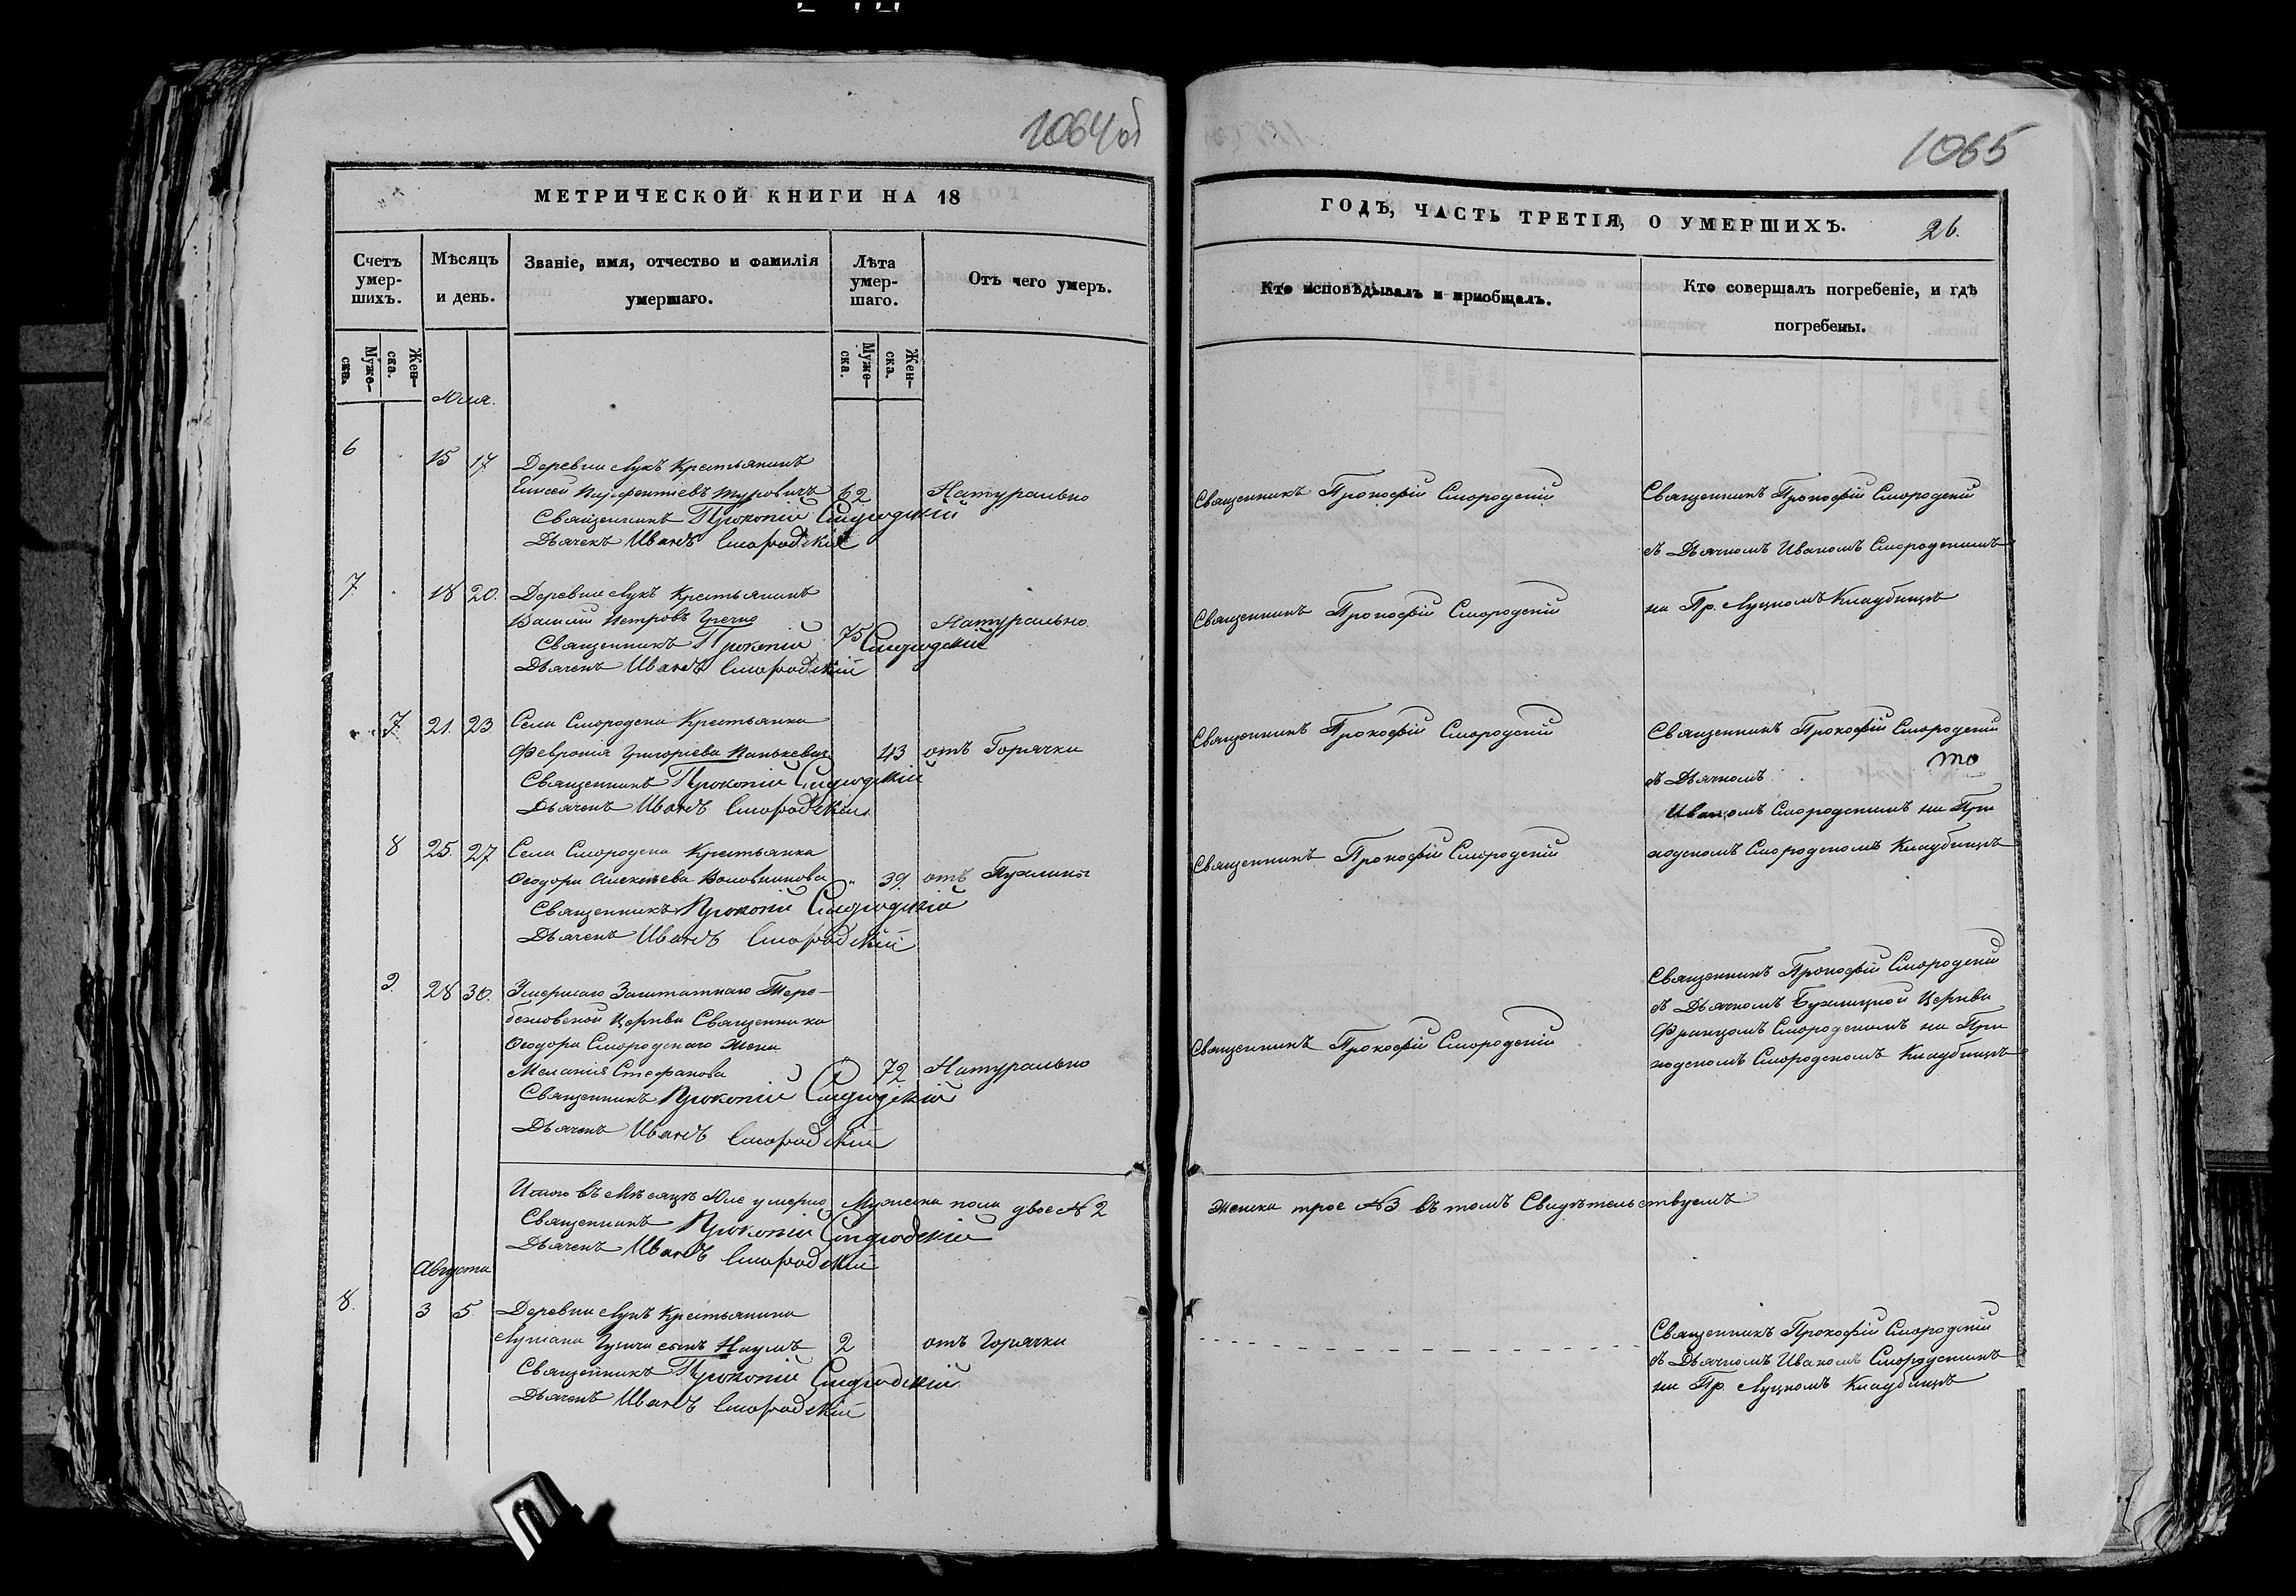 1064 об
МЕТРИЧЕСКОЙ КНИГИ НА 18
Счетъ умер-шихъ.
Мѣсяцъ и день.
Званіе, имя, отчество и фамилія умершаго.
Лѣта умер-шаго.
Отъ чего умеръ.
Муже-ска.
Жен-ска.
Муже-ска.
Жен-ска.
Юля.
6 15 17 Деревни Лукъ Крестьянинъ
Елисей Парфентіевъ Туровичъ 62 Натурально
Священникъ Прокопій Смородскій
Дьячекъ Иванъ Смородскій
7. 18 20. Деревни Лукъ Крестьянинъ
Василій Петровъ Гречко 75 Натурально.
Священникъ Прокопій Смородскій
Дьячекъ Иванъ Смородскій
7 21. 23 Села Смородска Крестьянка
Февронія Григоріева Панькевичъ 43 отъ Горячки
Священникъ Прокопій Смородскій
Дьячекъ Иванъ Смородскій
8 25. 27 Села Смородска Крестьянка
Ѳеодора Алексѣева 39. отъ Пухлины
Священникъ Прокопій Смородскій
Дьячекъ Иванъ Смородскій
9. 28 30. Умершаго Заштатнаго Тере-
бежовской Церкви Священника
Ѳеодора Смородскаго Жена
Меланія Стефанова 72 Натурально
Священникъ Прокопій Смородскій
Дьячекъ Иванъ Смородскій
Итого въ Мѣсяцѣ Юле умерло Мужеска пола двое № 2
Священникъ Прокопій Смородскій
Дьячекъ Иванъ Смородскій
Августа
8. 3 5. Деревни Лукъ Крестьянина
Лукіана сынъ Наумъ 2 отъ Горячки
Священникъ Прокопій Смородскій
Дьячекъ Иванъ Смородскій
1065
ГОДЪ, ЧАСТЬ ТРЕТІЯ, О УМЕРШИХЪ.
26.
Кто исповѣдывалъ и пріобщалъ.
Кто совершалъ погребеніе, и гдѣ погребены.
Священникъ Прокофій Смородскій
Священникъ Прокофій Смородскій
съ Дьячкомъ Иваномъ Смородскимъ
Священникъ Прокофій Смородскій
на Пр. Луцкомъ Кладбищѣ
Священникъ Прокофій Смородскій
Священникъ Прокофій Смородскій
то
съ Дьячкомъ
Иваномъ Смородскимъ на При
Священникъ Прокофій Смородскій
ходскомъ Смородскомъ Кладбищѣ
Священникъ Прокофій Смородскій
съ Дьячкомъ Бухлицкой Церкви
Францомъ Смородскимъ на При
Священникъ Прокофій Смородскій
ходскомъ Смородскомъ Кладбищѣ
Женска трое №3 въ томъ Свидѣтельствуемъ
Священникъ Прокофій Смородскій
съ Дьячкомъ Иваномъ Смородскимъ
на Пр. Луцкомъ Кладбищѣ